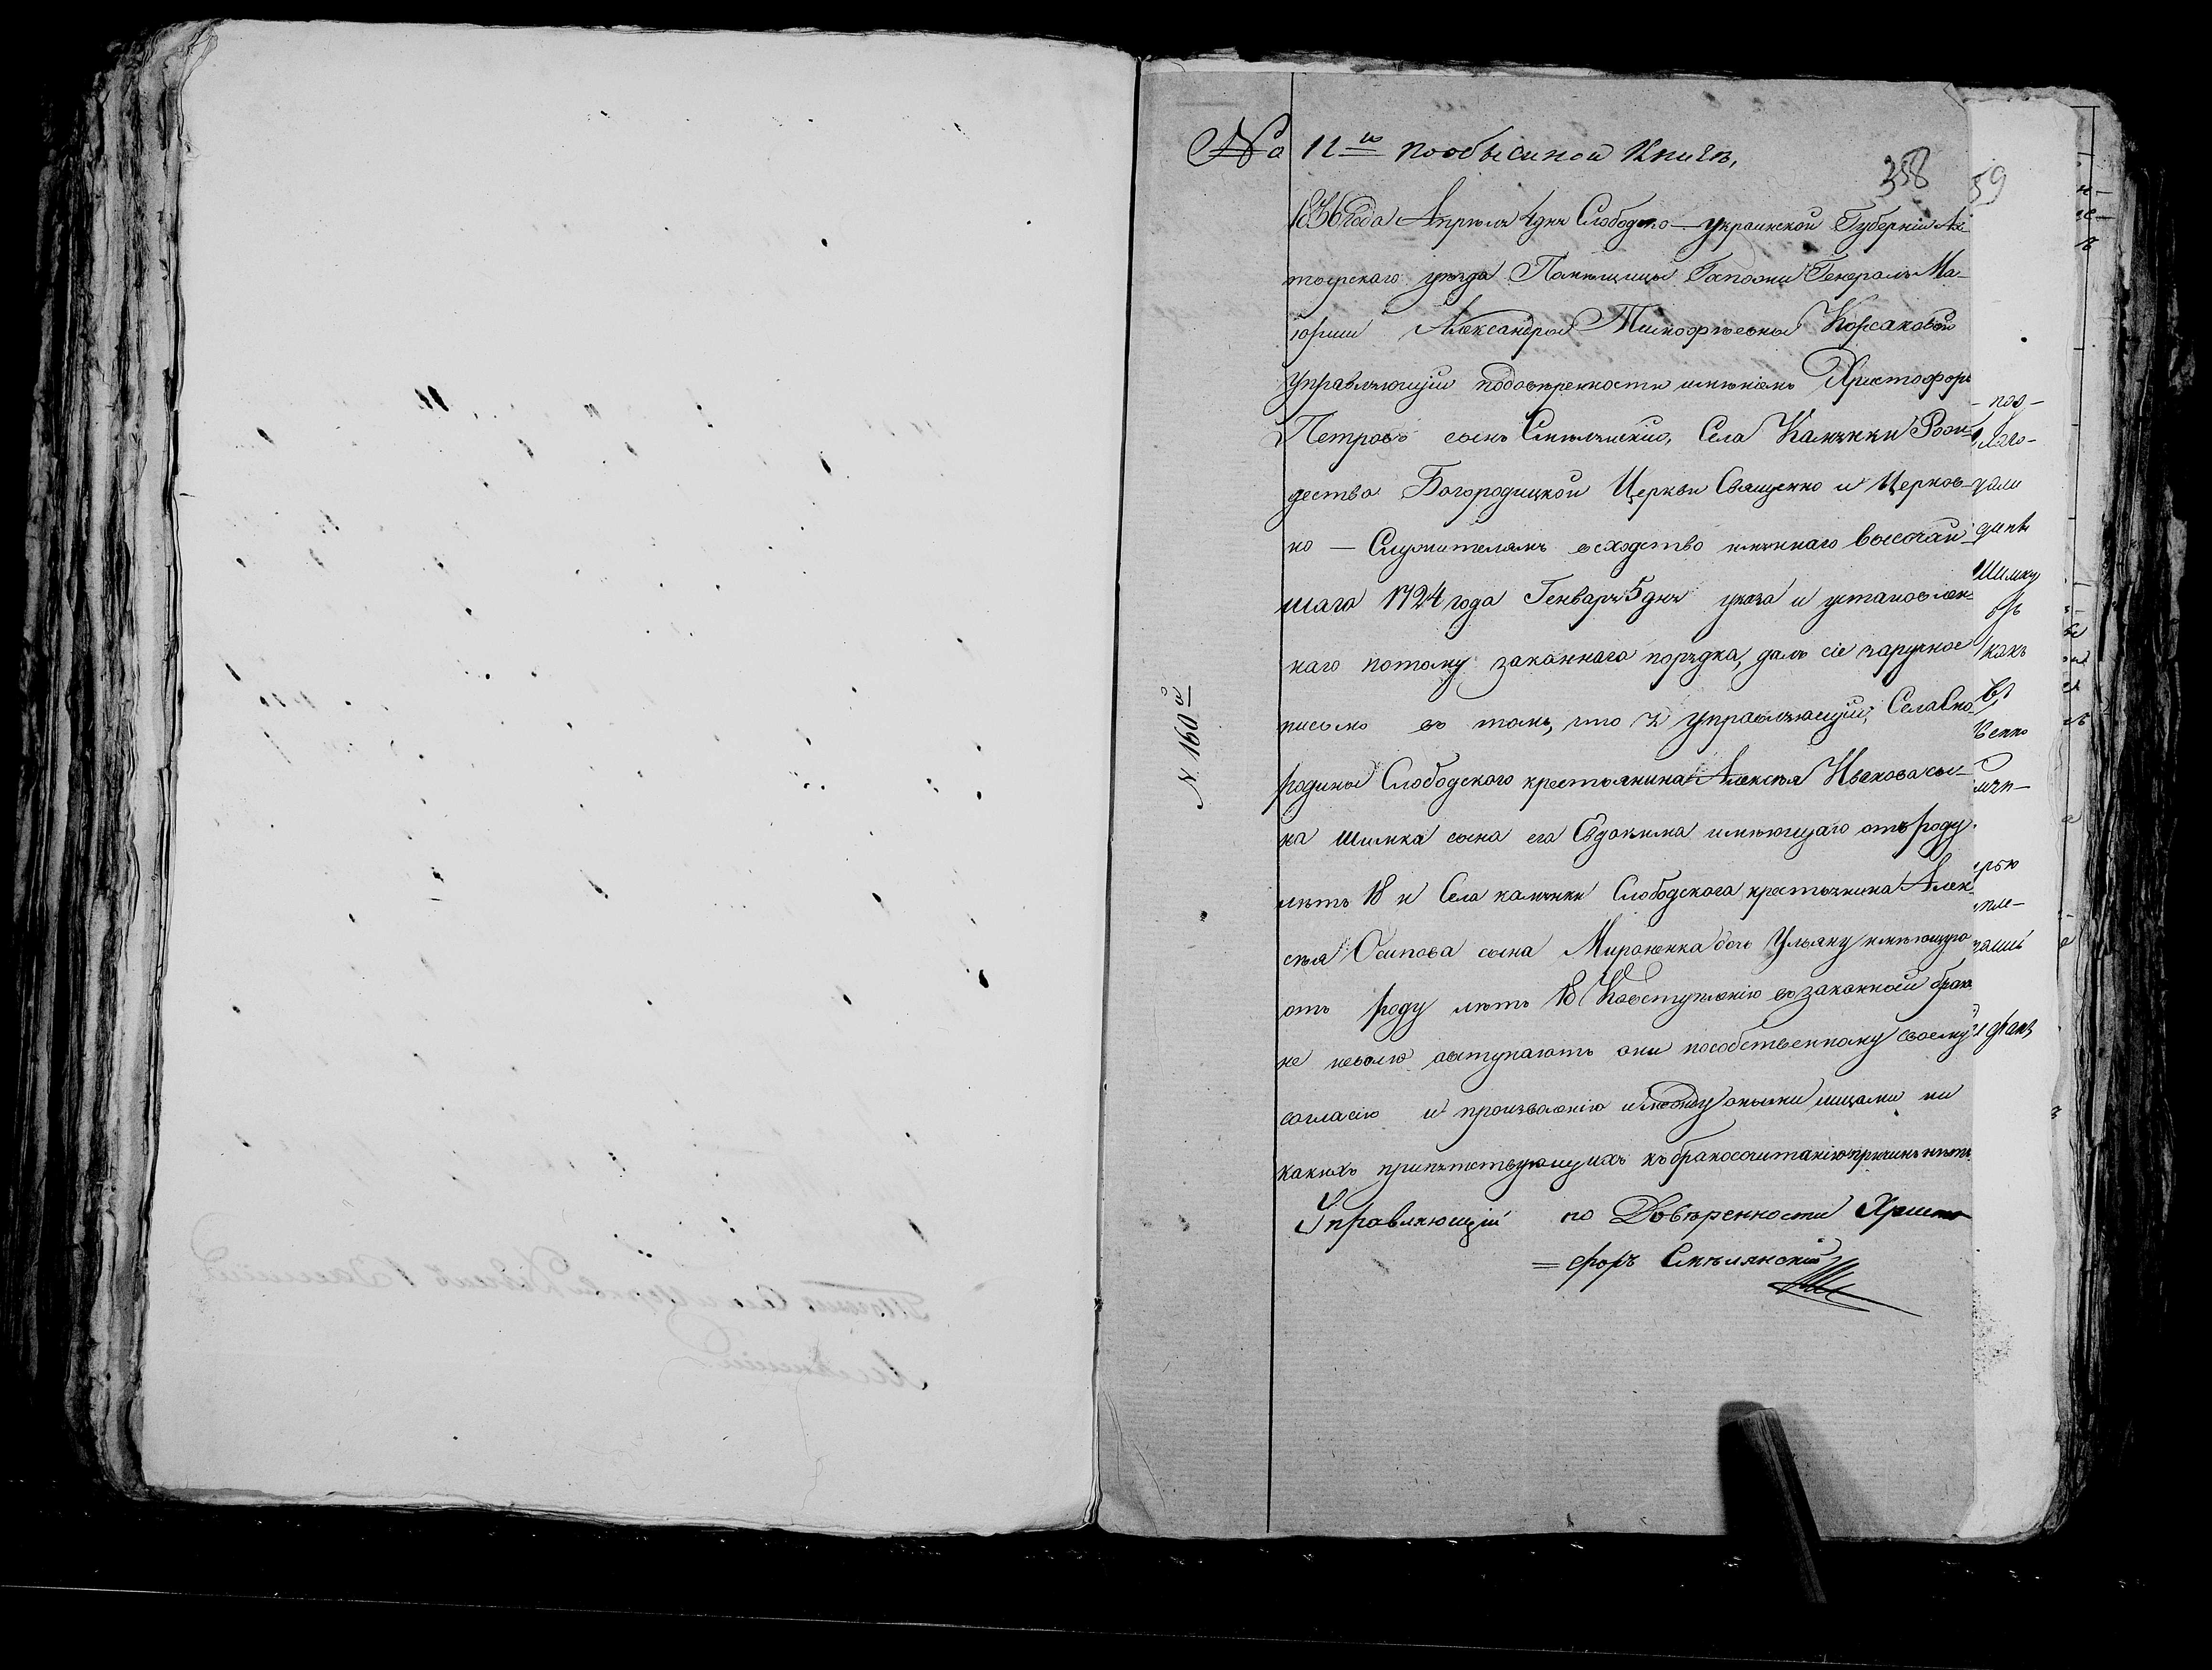 № 11й пообыскной книгѣ,
358
59
1836 года Апрѣля 4 дня Слободско—украинской Губерніи Ах-
тырскаго уѣзда Помѣщицы Госпожи Генералъ Ма-
іорши Александры Тимофѣевны Корсаковой
Управляющій подовѣренности имѣніемъ Христофоръ
Петровъ сынъ Смѣлянскій, Села Камянки Рож-
дества Богородицкой Церкви Священно и Церков-
но — Служителямъ всходство имяннаго высочай-
шаго 1724 года Генваря 5 дня указа и установлен-
наго потому законнаго порядка, далъ сіе заручное
письмо въ томъ, что я управляющій, Села
родины Слободского крестьянина Алексѣя Иванова сы-
на Шимка сына его Евдокима имѣющаго отъ роду
лѣтъ 18 и Села камянки Слободскаго крестьянина Алек-
сѣя Осипова сына Мироненка дочь Ульяну имѣющую
отъ роду лѣтъ 18 Квоступленію въ законной бракъ
не неволю вступаютъ они пособственному своему
согласію и произволенію и между оными лицами ни
какихъ припятствующихъ къ бракосочитанію причинъ нѣтъ
Управляющій по Довѣренности Христо
= форъ Смѣлянскій
№ 160й